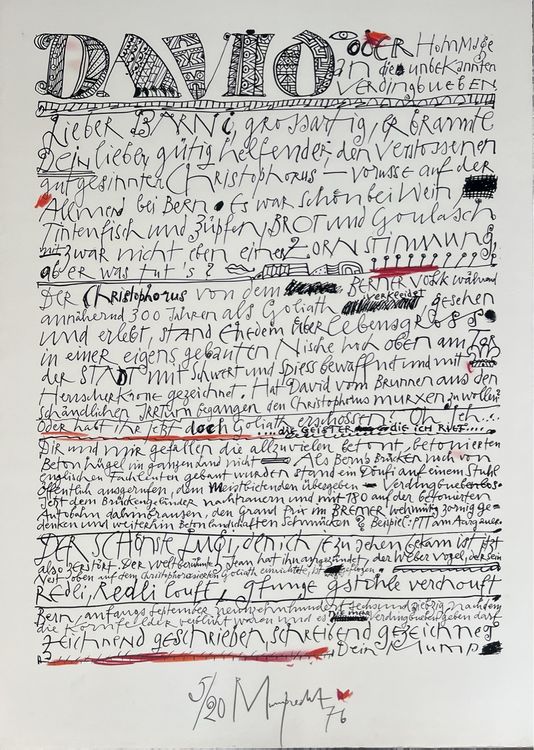 DAVID ODER Hommage
an die unbekannten
VERDINGBUEBEN
Lieber BÄRNi, grossartig, er brannte
Dein lieber, gütig helfender, den Verstossenen
gut gesinnten Christophorus – vorusse auf der
Allmend bei Bern. Es war schön bei Wein,
Tintenfisch und Züpfen, BROT und Goulasch
mit zwar nicht eben einer ZORNSTIMMUNG,
aber was tut's?
DER Christophorus von dem BERNER VOLK während
annähernd 300 Jahren als Goliath verkeert gesehen
und erlebt, stand ehedem überlebensgross
in einer eigens gebauten Nische hoch oben am Tor
der STADT mit Schwert und Spiess bewaffnet und mit
Herrscherkrone gezeichnet. Hat David vom Brunnen aus den
schändlichen Irrtum begangen den Christophorus murxen zu wollen?
Oder habt ihr jetzt doch Goliath erschossen? Oh, Ich...
....die GEISTER die ich RIEF....
Dir und mir gefallen die allzuvielen betont, betonierten
Betonhügel im ganzen Land nicht Als Berns Brücken noch von
Englischen Fachleuten gebaut wurden stand ein Doufi auf einem Stuhl
öffentlich ausgerufen, dem Meistbietenden übergeben – Verdingbueb
Jetzt dem Brückengeländer nachtrauern und mit 180 auf der betonierten
Autobahn dahinbrausen, den Grand Prix im BREMER wehmütig zornig ge-
denken und weiterhin Betonlandschaften schmücken? Beispiel: PTT am Aargauer
DER SCHÖNSTE IMGI, den ich je zu sehen bekam ist jetzt
also zerstört. Der weltberühmte Jean hat ihn angezündet, der Weber Vogel, der sein
Nest oben auf dem christophorusernen Goliath einrichtete, ist
REDLi, Redli Louft, Aftunge gstohle verchouft
Bern, anfangs September neunzehnhundertsechsundsiebzig nachdem
die felder verblüht waren und es Verdingbueben geben darf
Zeichnend geschrieben, schreibend gezeichnet
Dein Mump
5/20 Mumprecht 76